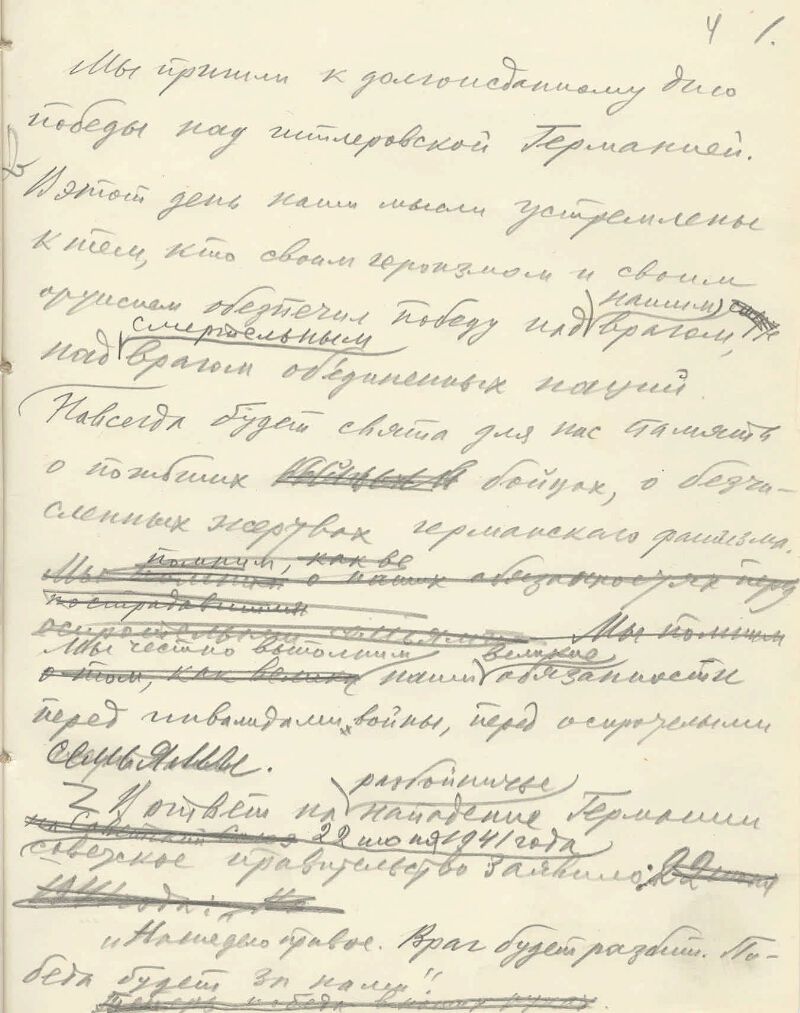 4 1.
Мы пришли к долгожданному дню
победы над гитлеровской Германией.
В этот день наши мысли устремлены
к тем, кто своим героизмом и своим
нашим
оружием обезпечил победу над врагом,
смертельным
над врагом объединенных наций.
Навсегда будет свята для нас память
о погибших бойцах, о безчи-
сленных жертвах германского фашизма.
помним, как ве
Мы помним о наших обязанностях перед
пострадавшими
осиротелыми семьями. Мы помним
Мы честно выполним великие
о том, как велики наши обязанности
перед инвалидами войны, перед осиротелыми
семьями.
разбойничье
В ответ на нападение Германии
на Советский Союз 22 июня 1941 года
советское правительство заявило: 22 июня
1941 года:
"Наше дело правое. Враг будет разбит. По-
беда будет за нами"!
Теперь победа в наших руках.